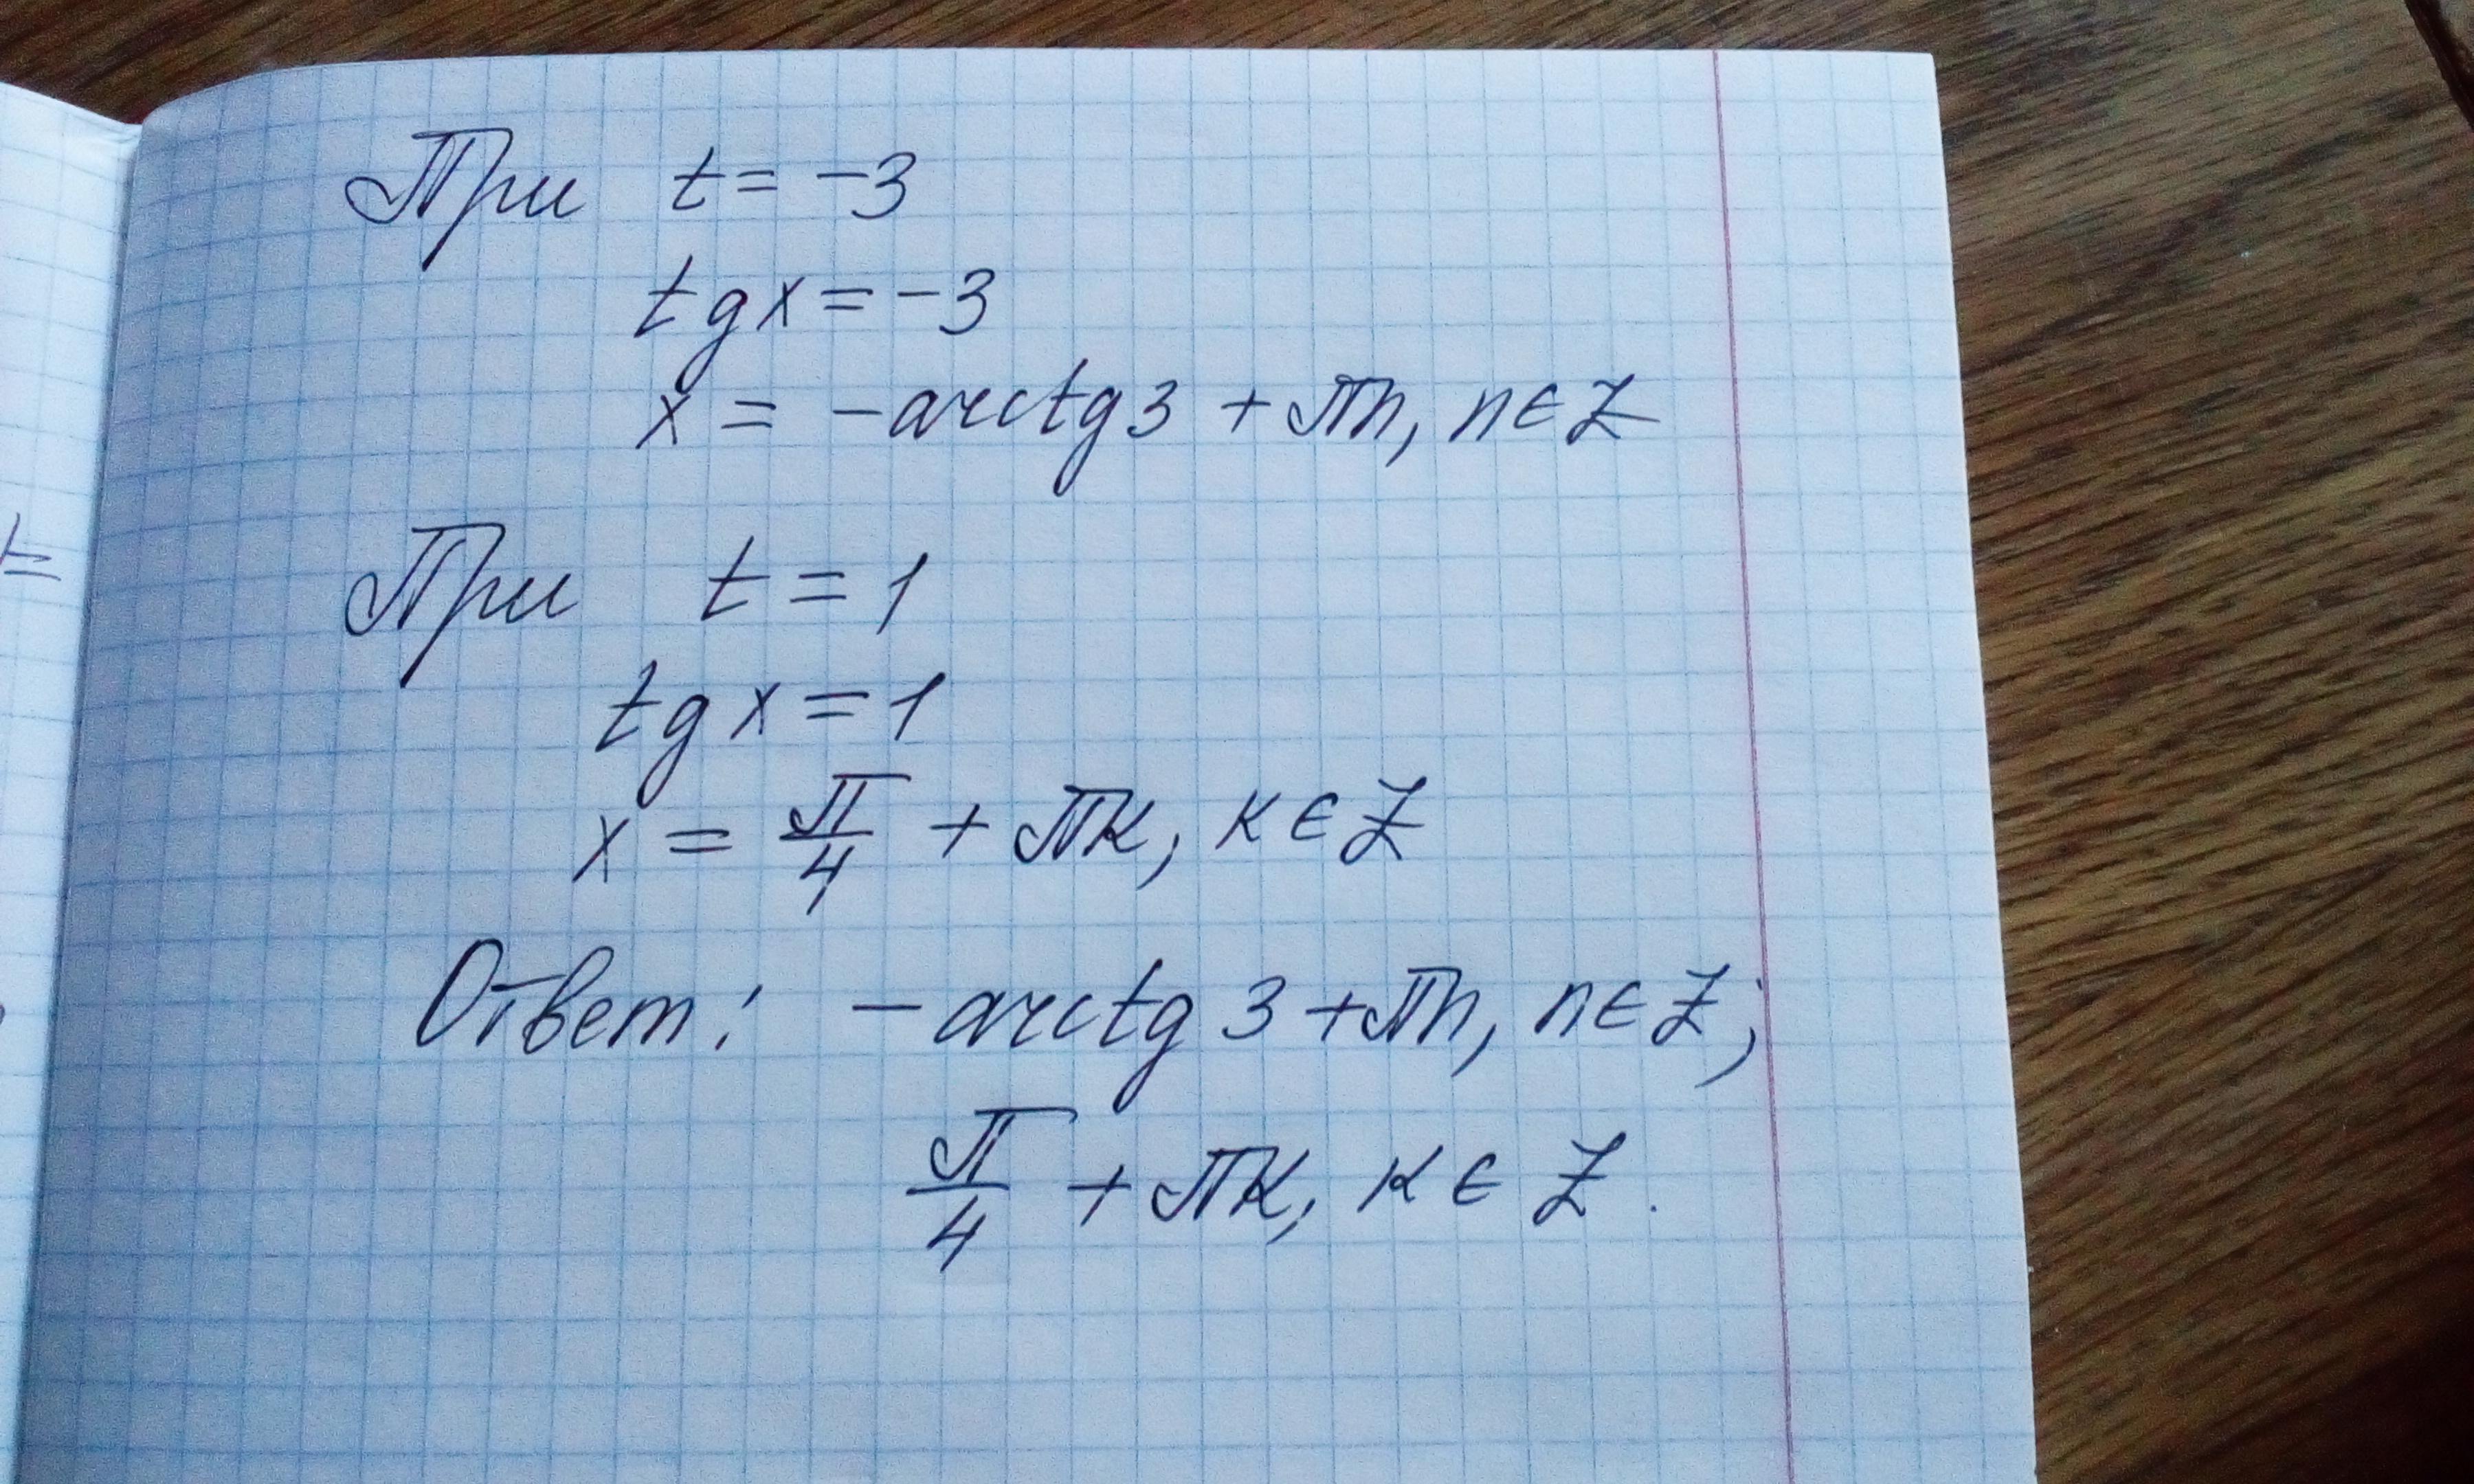 При t = -3
tg x = -3
x = -arctg 3 + πn, n ∈ Z
При t = 1
tg x = 1
x = π/4 + πк, к ∈ Z
Ответ: -arctg 3 + πn, n ∈ Z;
π/4 + πк, к ∈ Z.